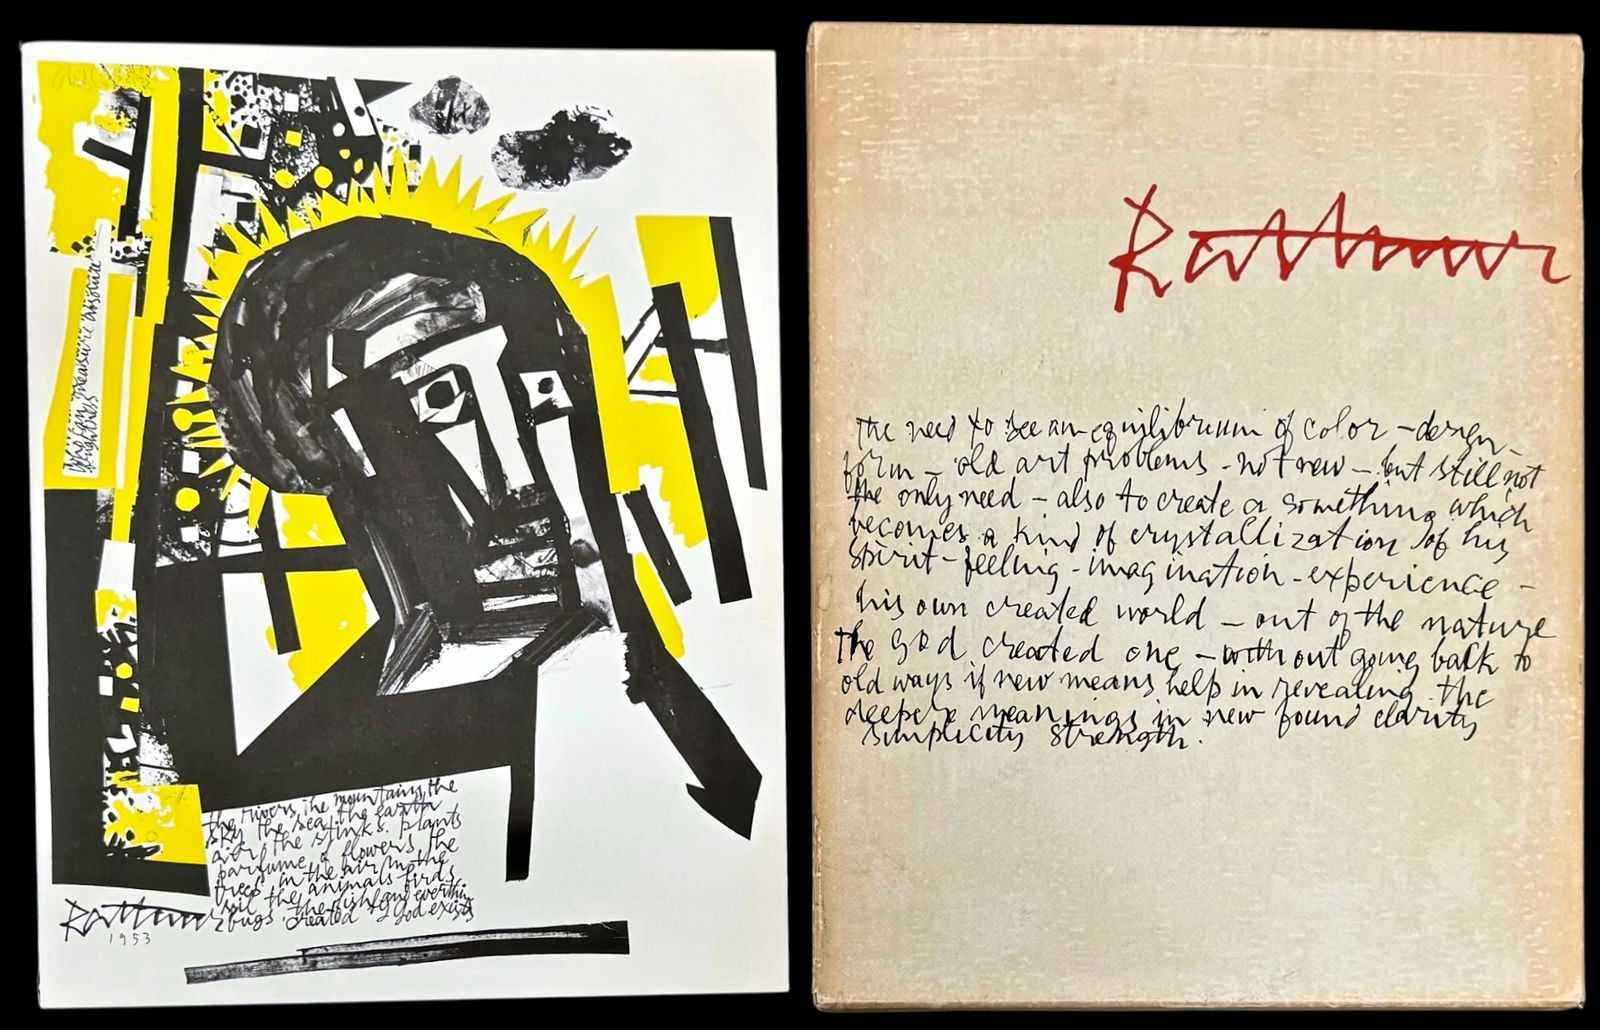 who can measure absolute
brightness
the rivers, the mountains, the
sky the sea, the earth
air, the stinks. plants
parfume of flowers, the
trees in the air in the
soil the animals birds
bugs. the fish and everthin
created
God exists
Rattner
1953
Rattner
the need to see an equilibrium of color - design -
form - old art problems - not new - but still not
the only need - also to create a something which
becomes a kind of crystallization of his
spirit - feeling - imagination - experience -
his own created world - out of the nature
the God created one - without going back to
old ways if new means help in revealing the
deeper meanings in new found clarity
simplicity strength.